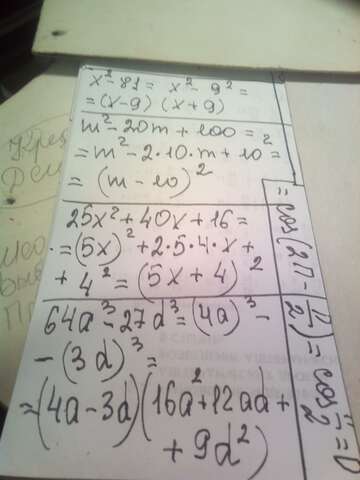 x² - 81 = x² - 9² =
= (x-9) (x+9)
m² - 20m + 100 =
= m² - 2·10·m + 10² =
= (m - 10)²
25x² + 40x + 16 =
= (5x)² + 2·5·4·x +
+ 4² = (5x + 4)²
64a³ - 27d³ = (4a)³ -
- (3d)³ =
= (4a - 3d)(16a² + 12ad +
+ 9d²)
= cos(2π - π/2) = cos π/2 = 0